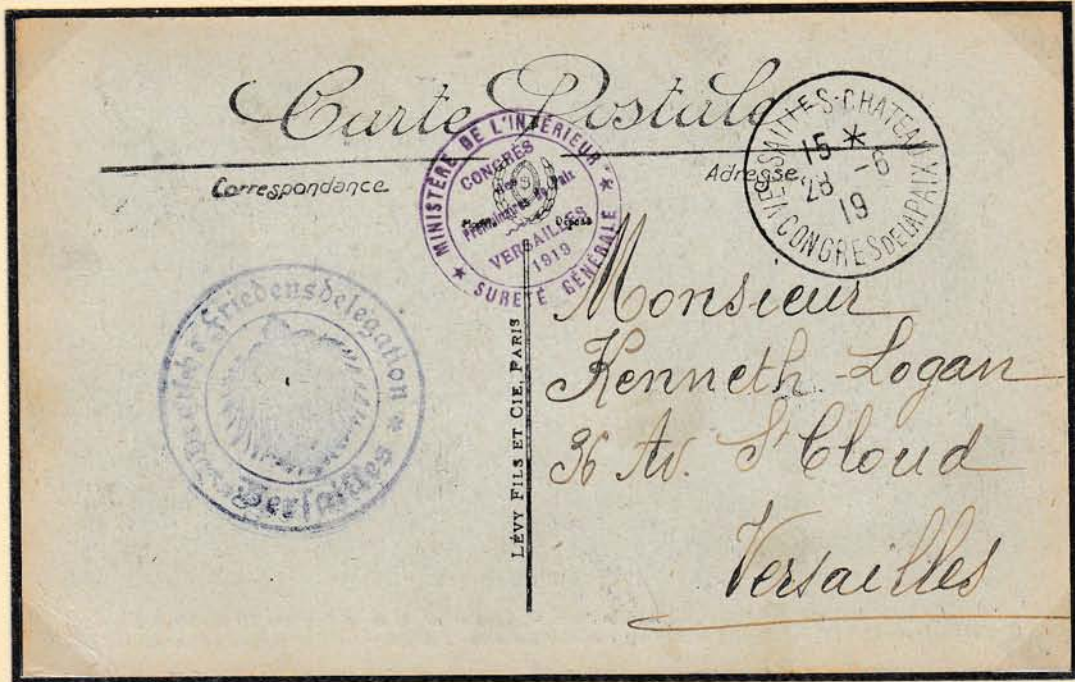 Carte Postale
Correspondance
Adresse
MINISTÈRE DE L'INTÉRIEUR
SURETÉ GÉNÉRALE
CONGRÈS
Préliminaires de Paix
VERSAILLES
1919
VERSAILLES-CHATEAU
CONGRES DE LA PAIX
15 *
28 -6
19
Friedensdelegation
Versailles
LÉVY FILS ET CIE, PARIS
Monsieur
Kenneth Logan
36 Av. St Cloud
Versailles